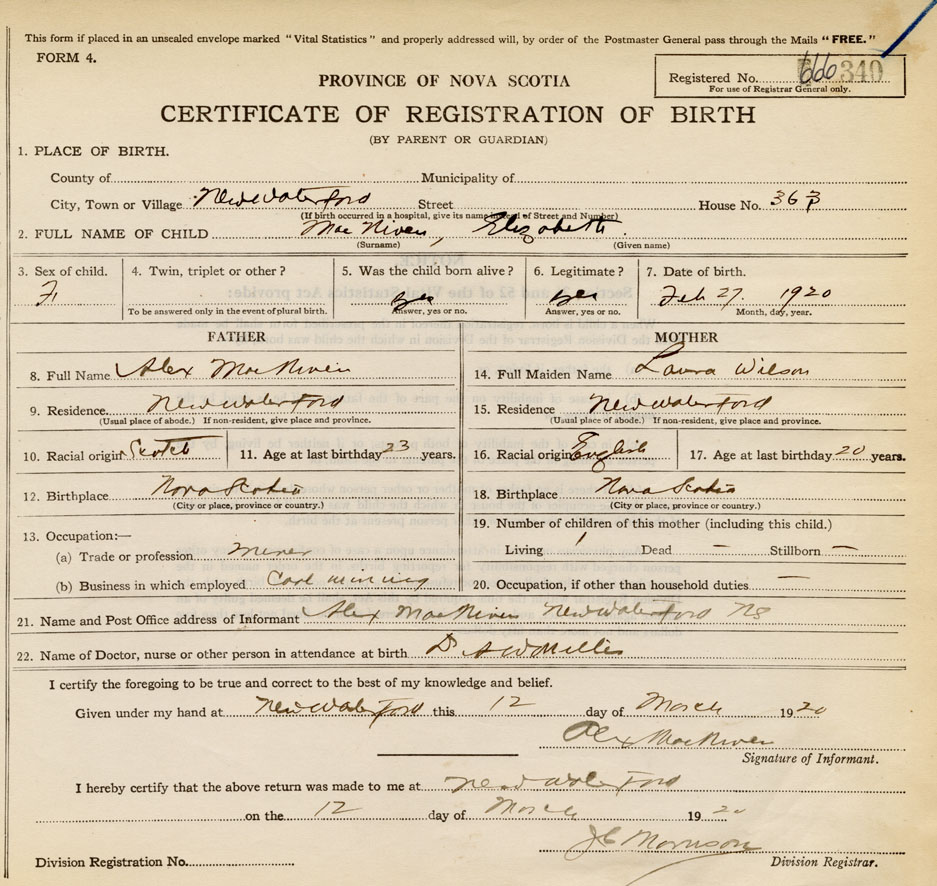 This form if placed in an unsealed envelope marked "Vital Statistics" and properly addressed will, by order of the Postmaster General pass through the Mails "FREE."
FORM 4.
Registered No. 340
For use of Registrar General only.
PROVINCE OF NOVA SCOTIA
CERTIFICATE OF REGISTRATION OF BIRTH
(BY PARENT OR GUARDIAN)
1. PLACE OF BIRTH.
County of Municipality of
City, Town or Village New Waterford Street House No. 363
(If birth occurred in a hospital, give its name instead of Street and Number)
2. FULL NAME OF CHILD MacNiven, Elizabeth.
(Surname) (Given name)
3. Sex of child. 4. Twin, triplet or other? 5. Was the child born alive? 6. Legitimate? 7. Date of birth.
F yes yes Feb 27. 1920
To be answered only in the event of plural birth. Answer, yes or no. Answer, yes or no. Month, day, year.
FATHER MOTHER
8. Full Name Alex MacNiven 14. Full Maiden Name Laura Wilson
9. Residence New Waterford 15. Residence New Waterford
(Usual place of abode.) If non-resident, give place and province. (Usual place of abode.) If non-resident, give place and province.
10. Racial origin Scotch 11. Age at last birthday 23 years. 16. Racial origin English 17. Age at last birthday 20 years.
12. Birthplace Nova Scotia 18. Birthplace Nova Scotia
(City or place, province or country.) (City or place, province or country.)
13. Occupation:— 19. Number of children of this mother (including this child.)
(a) Trade or profession Miner Living 1 Dead — Stillborn —
(b) Business in which employed Coal mining 20. Occupation, if other than household duties —
21. Name and Post Office address of Informant Alex MacNiven New Waterford NS
22. Name of Doctor, nurse or other person in attendance at birth Dr A W Miller
I certify the foregoing to be true and correct to the best of my knowledge and belief.
Given under my hand at New Waterford this 12 day of March 1920
Alex MacNiven
Signature of Informant.
I hereby certify that the above return was made to me at New Waterford
on the 12 day of March 1920
J C Morrison
Division Registration No. Division Registrar.